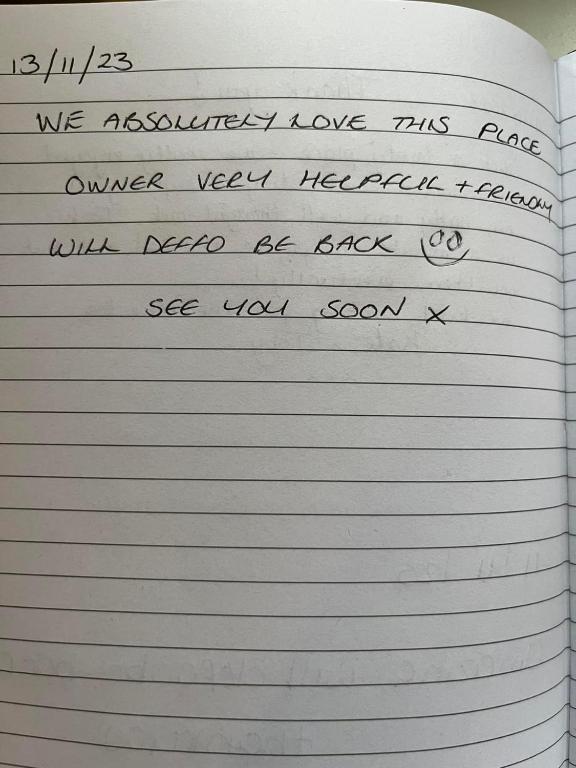 13/11/23
WE ABSOLUTELY LOVE THIS PLACE
OWNER VERY HELPFUL + FRIENDLY
WILL DEFFO BE BACK
SEE YOU SOON X